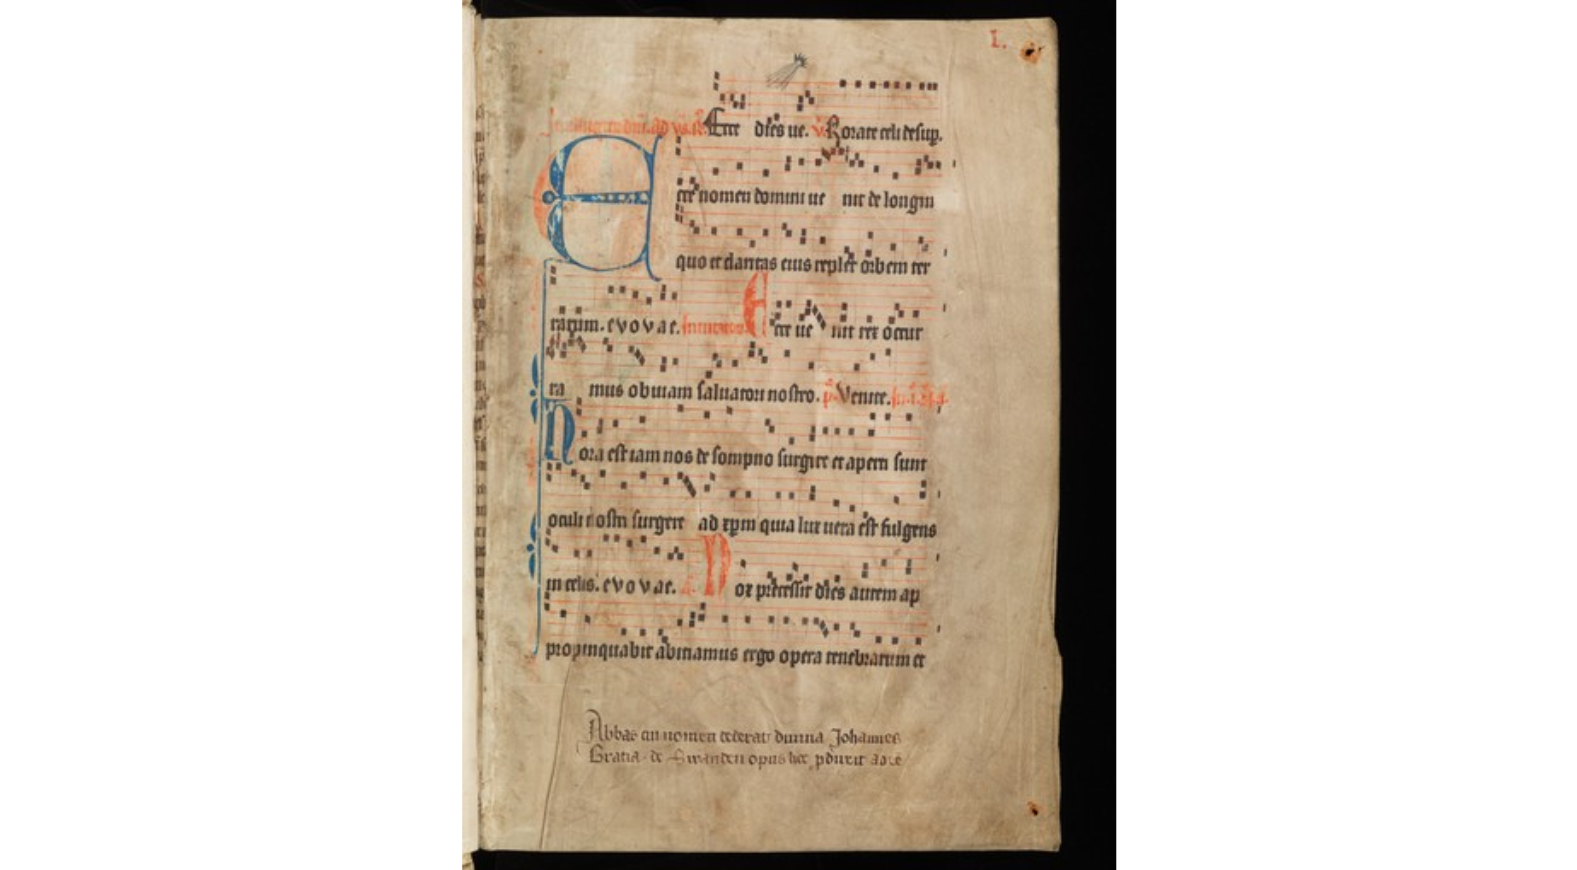 1.
Ecce dies ue. v. Rorate celi desup.
Ecce nomen domini ue nit de longin
quo et claritas eius replet orbem ter
rarum. evovae. Ecce ue nit rex occur
ra mus obuiam saluatori nostro. p. Venite.
Hora est iam nos de sompno surgere et aperti sunt
oculi nostri surgere ad xpm quia lux uera est fulgens
in celis. evovae. Nox precessit dies autem ap
propinquabit abiciamus ergo opera tenebrarum et
Abbas cui nomen dederat diuina Johannes
Gratia de Swanden opus hec